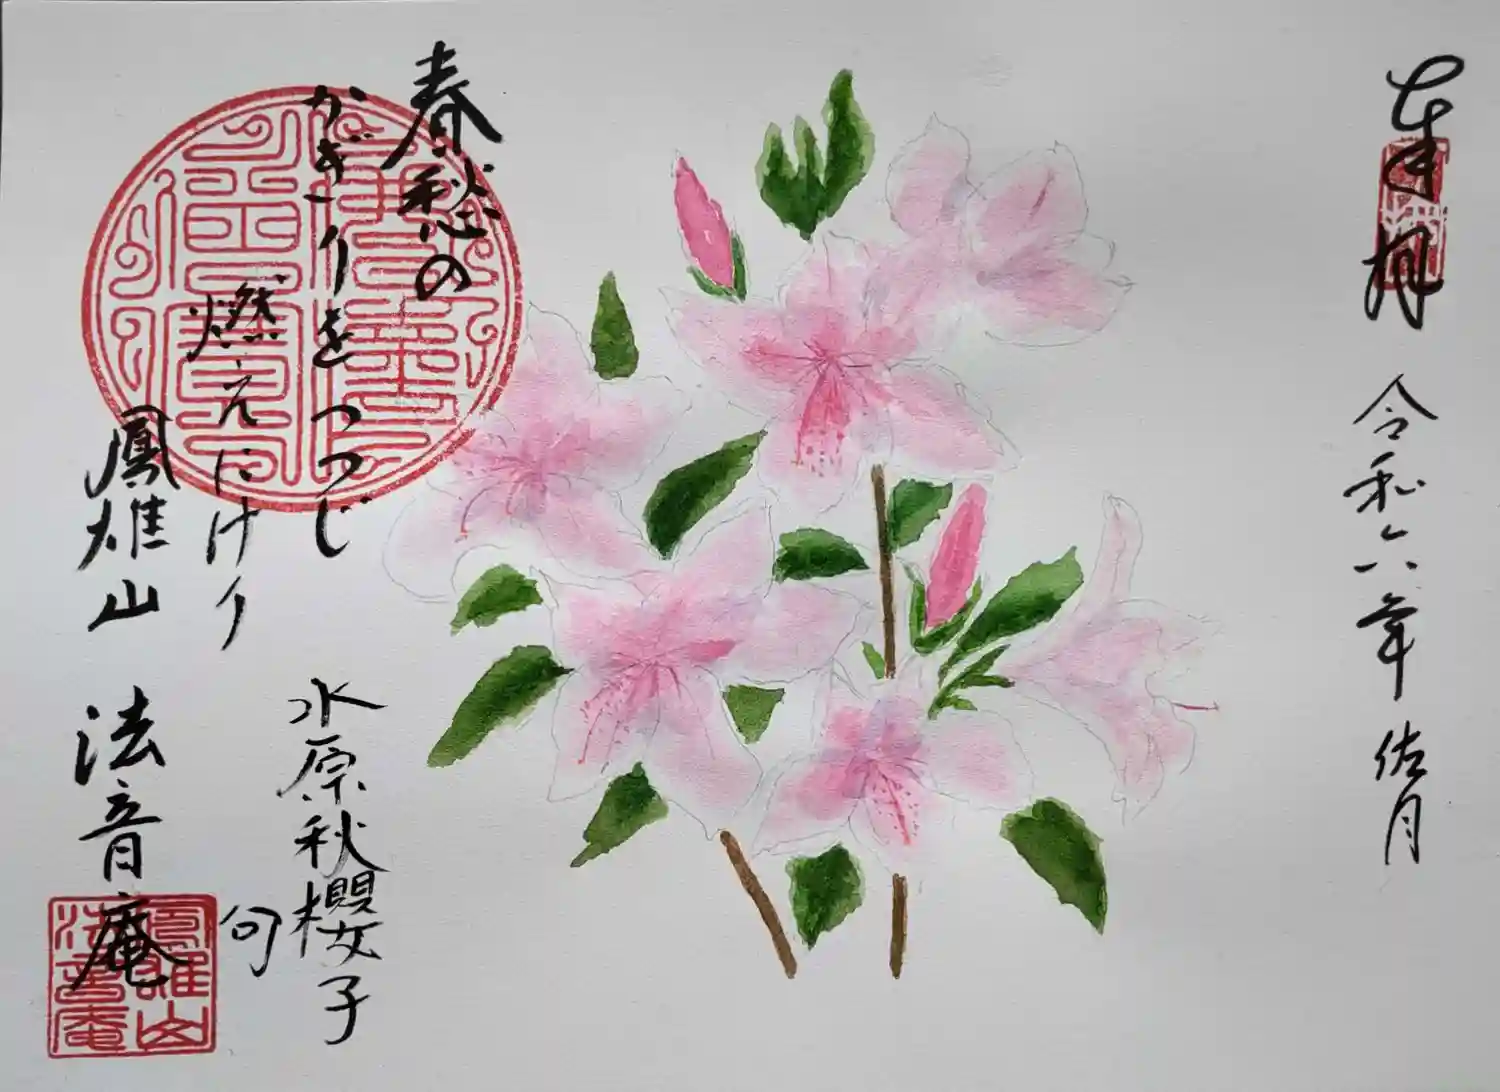 奉拝
令和六年 佐月
春愁の
かぎりをつつじ
燃えにけり
水原秋櫻子
句
鳳雄山 法音庵
鳳雄山
法音庵